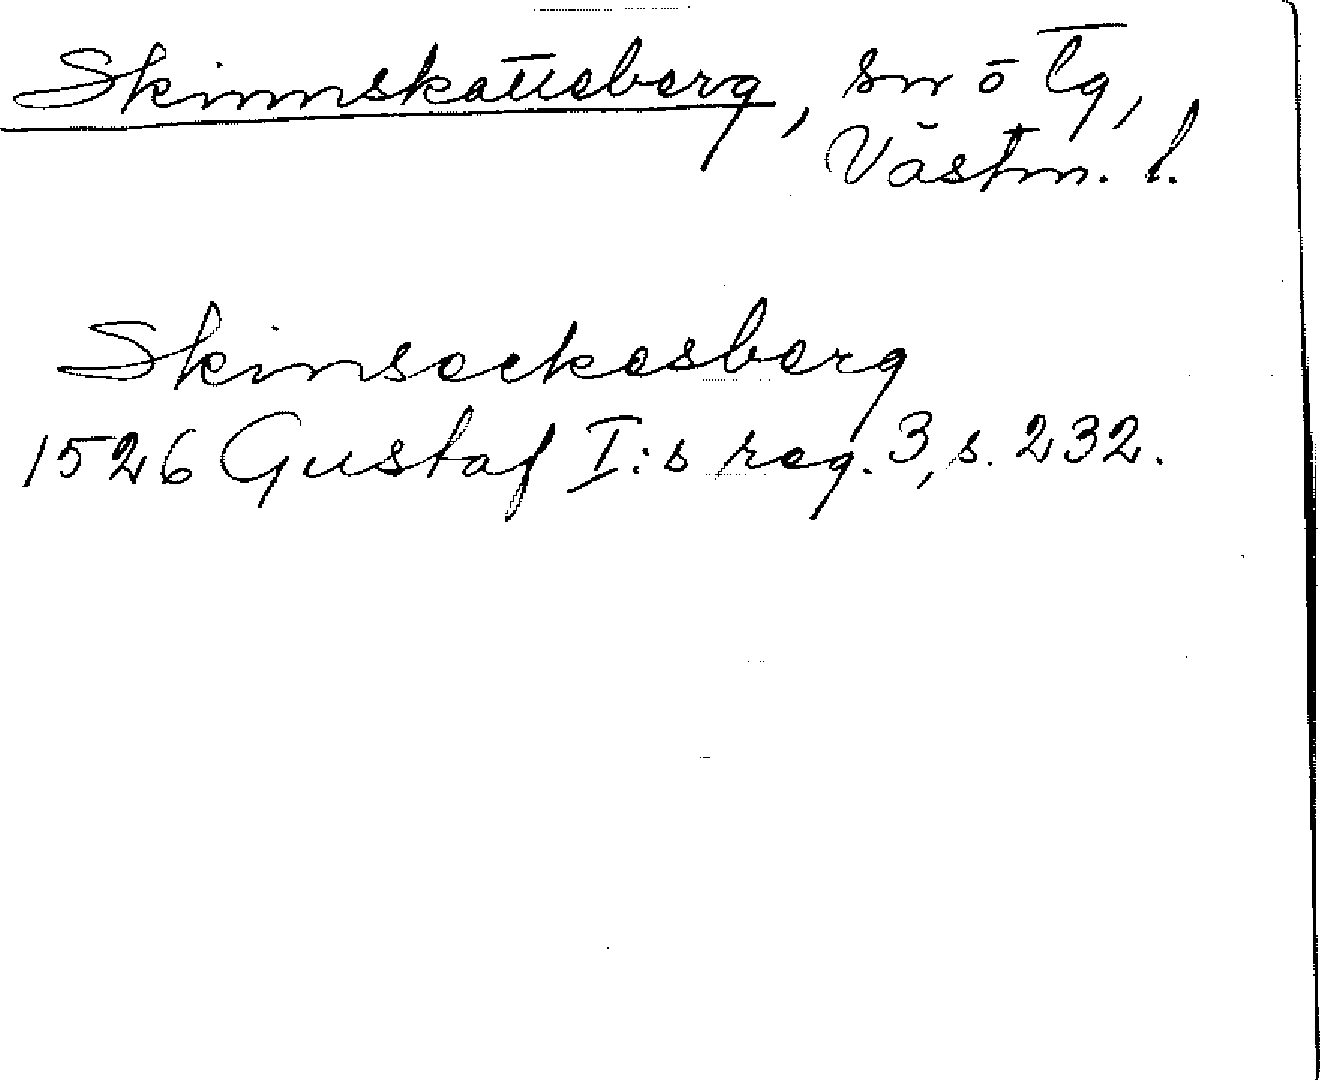 Skinnskatteberg, sn ö tg,
Västm. l.
Skinseckesberg
1526 Gustaf I:s reg. 3, s. 232.